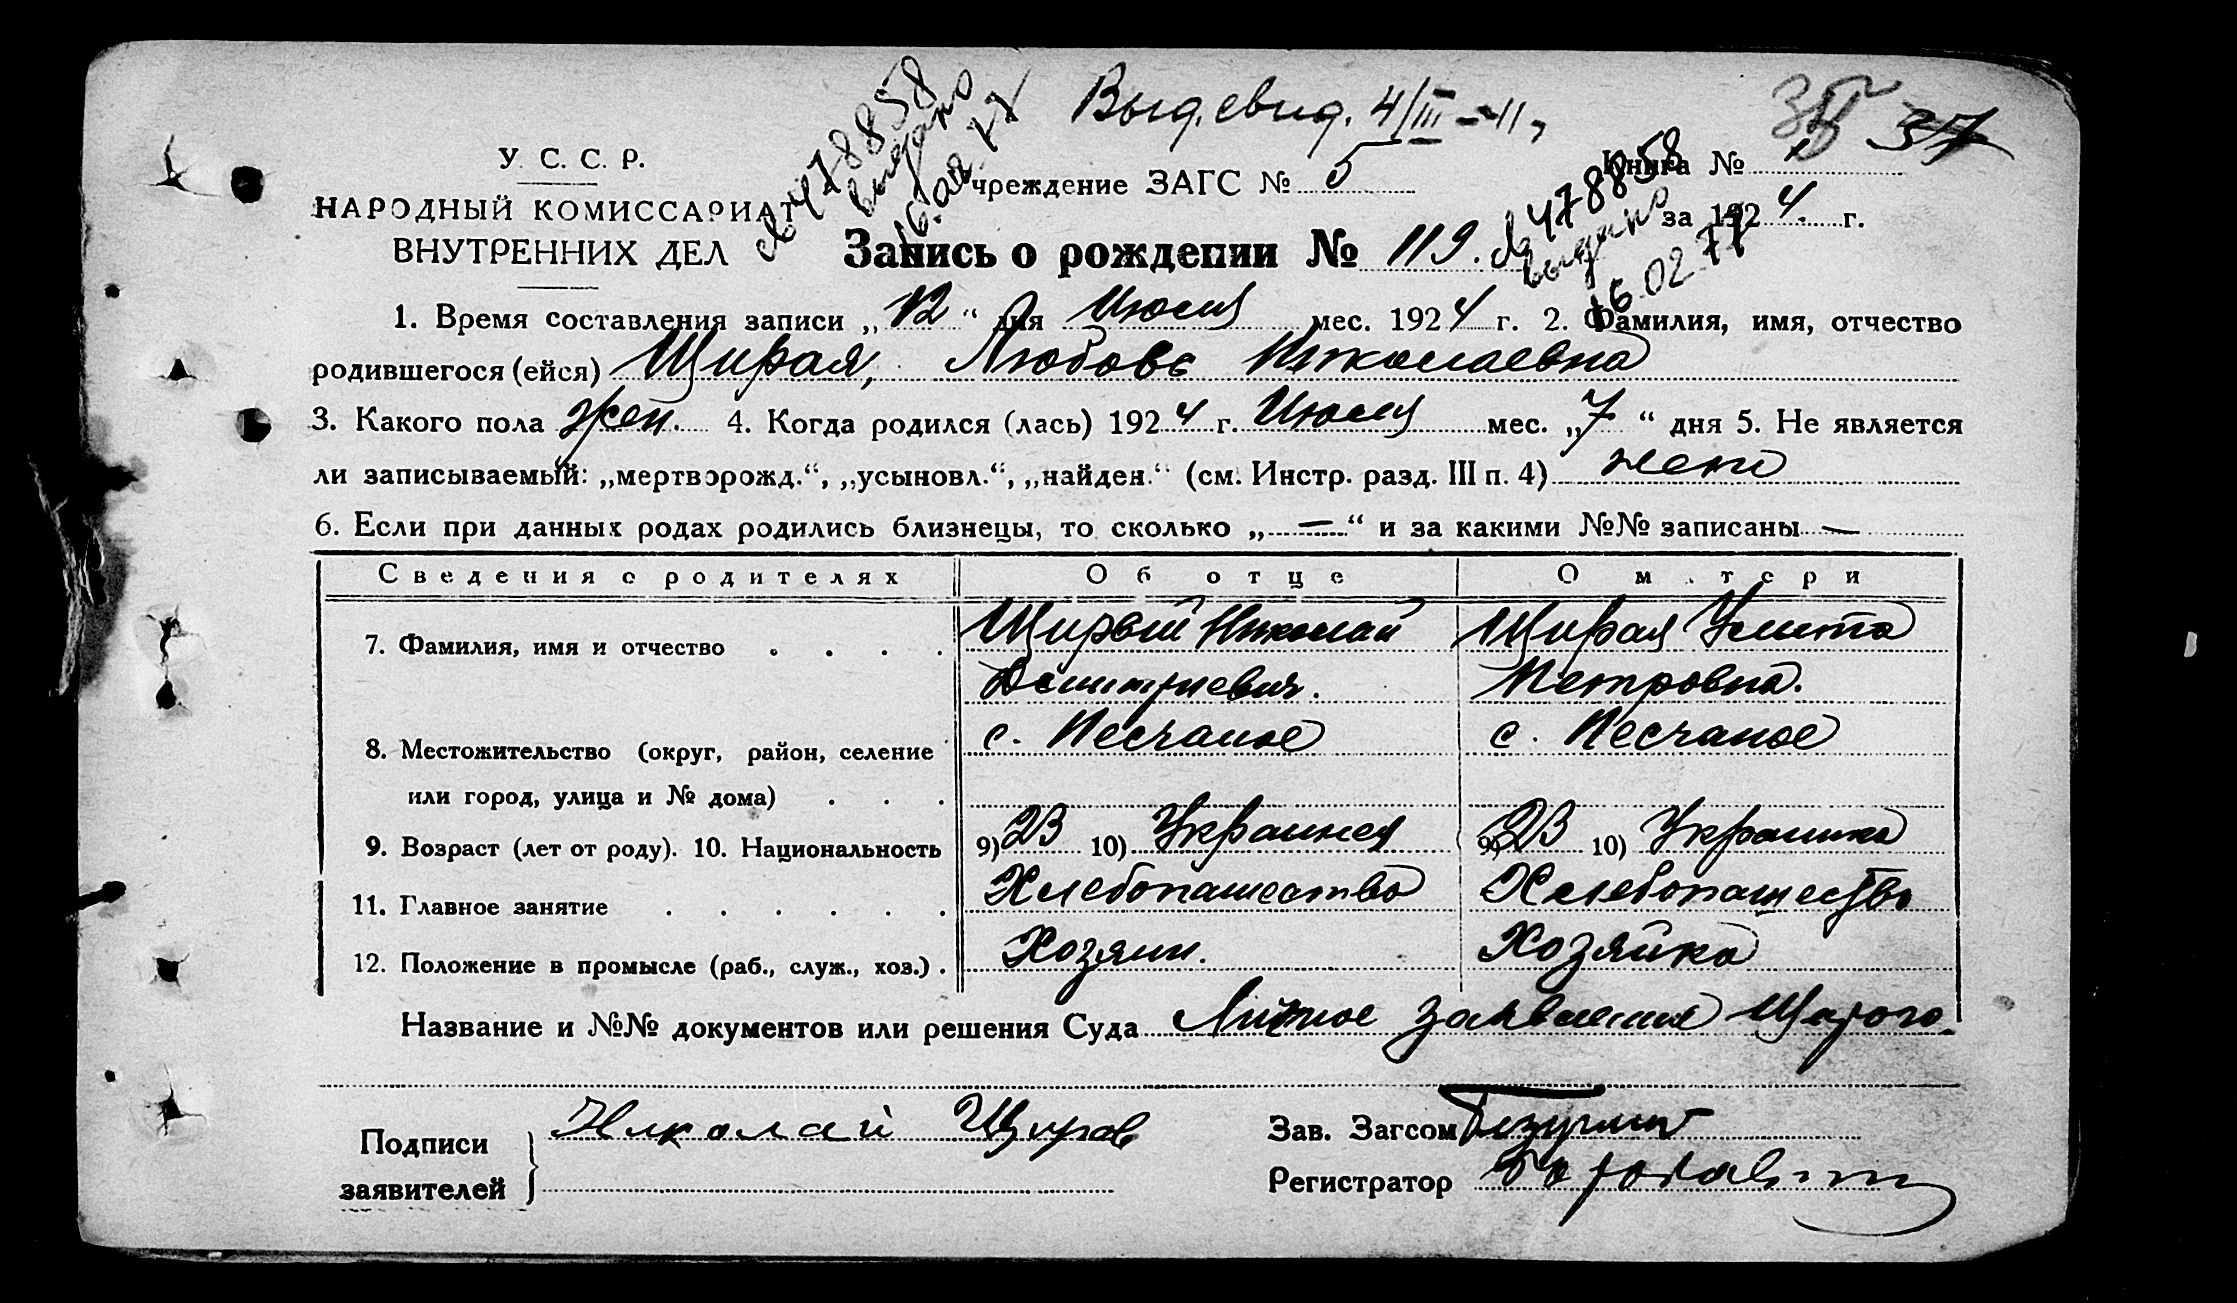 Выд. свид. 4/III-
37
У. С. С. Р.
НАРОДНЫЙ КОМИССАРИАТ
ВНУТРЕННИХ ДЕЛ
478858
выдано
Учреждение ЗАГС № 5
Книга №
за 1924 г.
478858
выдано
16.02.77
Запись о рождении № 119.
1. Время составления записи „12“ дня Июля мес. 1924 г. 2. Фамилия, имя, отчество
родившегося (ейся) Щирая, Любовь Николаевна
3. Какого пола жен. 4. Когда родился (лась) 1924 г. Июля мес. „7“ дня 5. Не является
ли записываемый: „мертворожд.“, „усыновл.“, „найден.“ (см. Инстр. разд. III п. 4) нет
6. Если при данных родах родились близнецы, то сколько „—“ и за какими №№ записаны —
Сведения о родителях Об отце О матери
7. Фамилия, имя и отчество . . . . Щирый Николай Щирая Улита
Дмитриевич. Петровна.
8. Местожительство (округ, район, селение с. Песчаное с. Песчаное
или город, улица и № дома) . . .
9. Возраст (лет от роду). 10. Национальность 9) 23 10) Украинец 9) 23 10) Украинка
11. Главное занятие . . . . . . Хлебопашество Хлебопашество
12. Положение в промысле (раб., служ., хоз.) . Хозяин. Хозяйка
Название и №№ документов или решения Суда Личное заявление Щирого.
Подписи
заявителей
Николай Щиров
Зав. Загсом
Регистратор